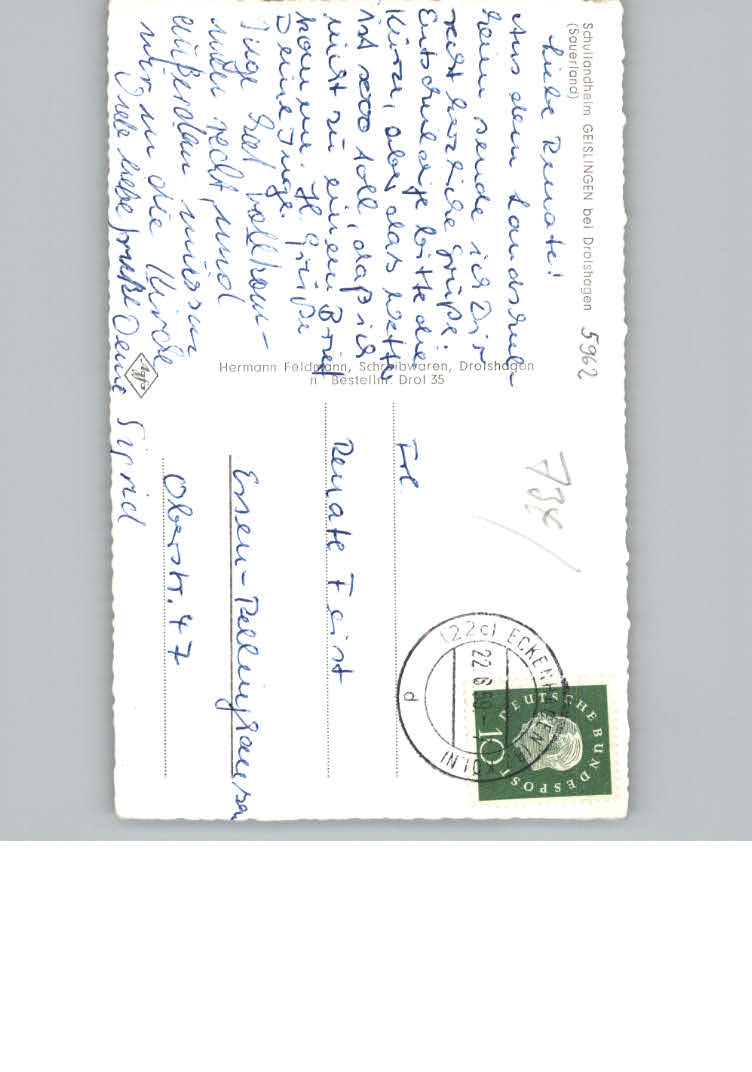 Schullandheim GEISLINGEN bei Drolshagen
(Sauerland)
5962
Liebe Renate!
Aus dem Landschul-
heim sende ich Dir
recht herzliche Grüße.
Entschuldige bitte die
Kürze, aber das Wetter
ist sooo toll, daß ich
nicht zu einem Brief
komme. Hl. Grüße
Deine Inge.
Inge hat vollkom-
men recht, und
außerdem müssen
wir in die Kirche
Viele liebe Grüße Deine Sigrid
Hermann Feldmann, Schreibwaren, Drolshagen
n Bestellnr. Drol 35
Agfa
734
Frl.
Renate Feist
Essen-Rellinghausen
Oberstr. 47
(22c) ECKENHAGEN
22.6.60
KÖLN)
d
DEUTSCHE BUNDESPOST
10